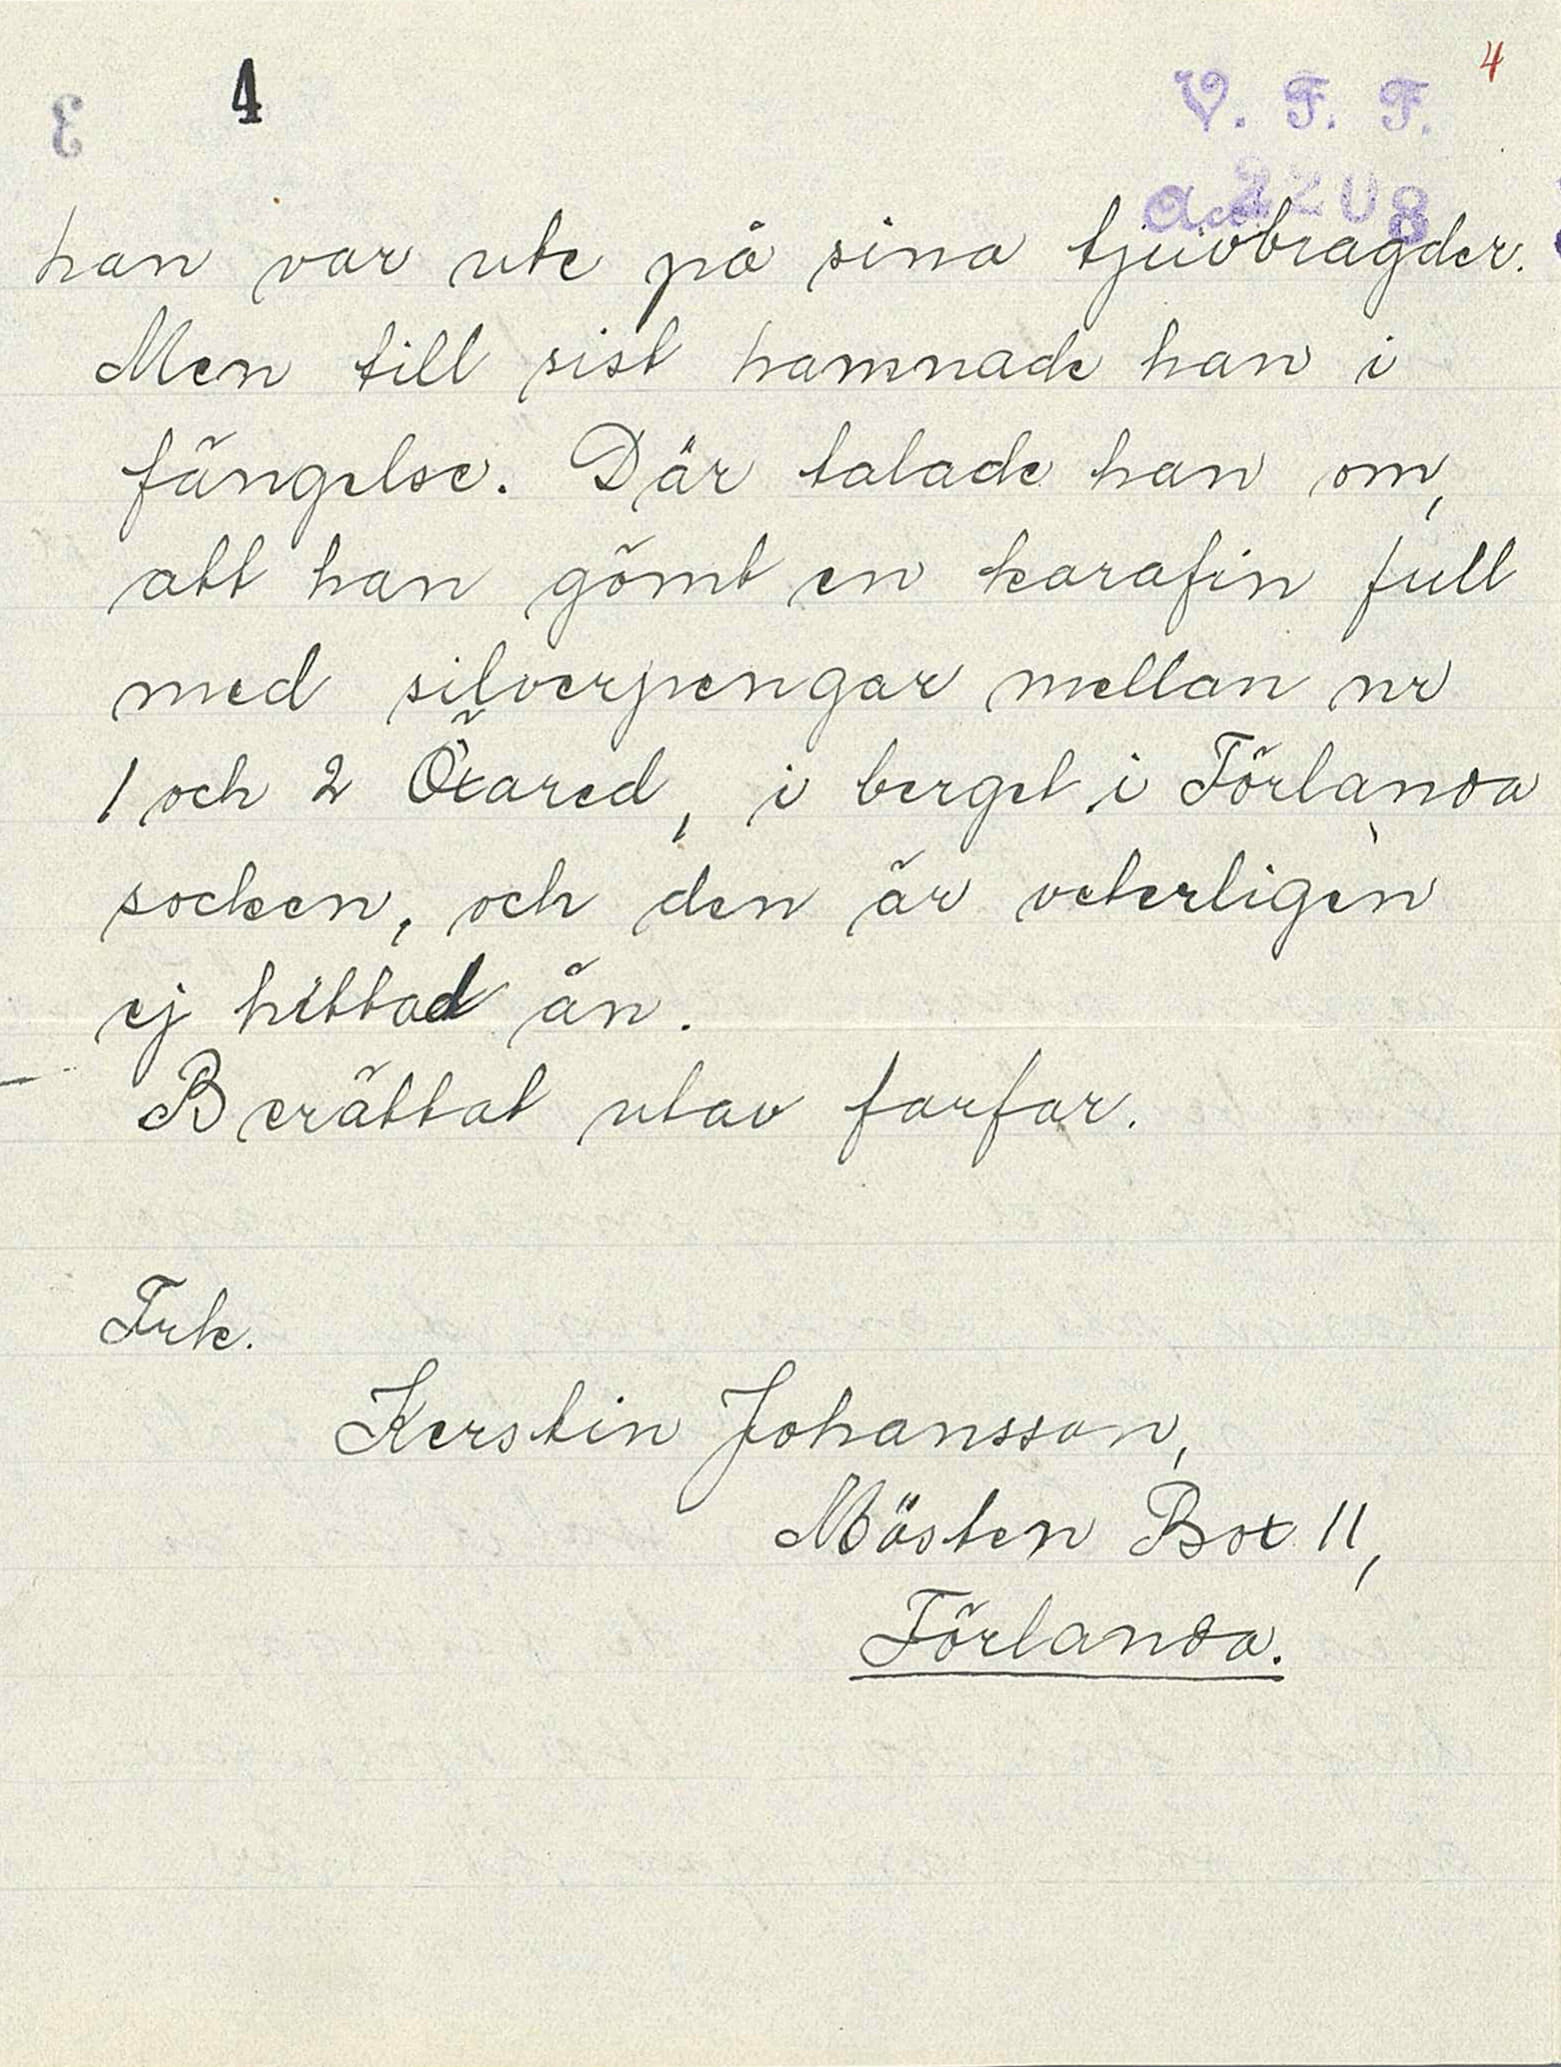 4
4
V. F. F.
acc 2208
han var ute på sina tjuvbragder.
Men till sist hamnade han i
fängelse. Där talade han om,
att han gömt en karafin full
med silverpengar mellan nr
1 och 2 Öxared, i berget i Förlanda
socken, och den är veterligen
ej hittad än.
Berättat utav farfar.
Frk.
Kerstin Johansson,
Mösten Box 11,
Förlanda.